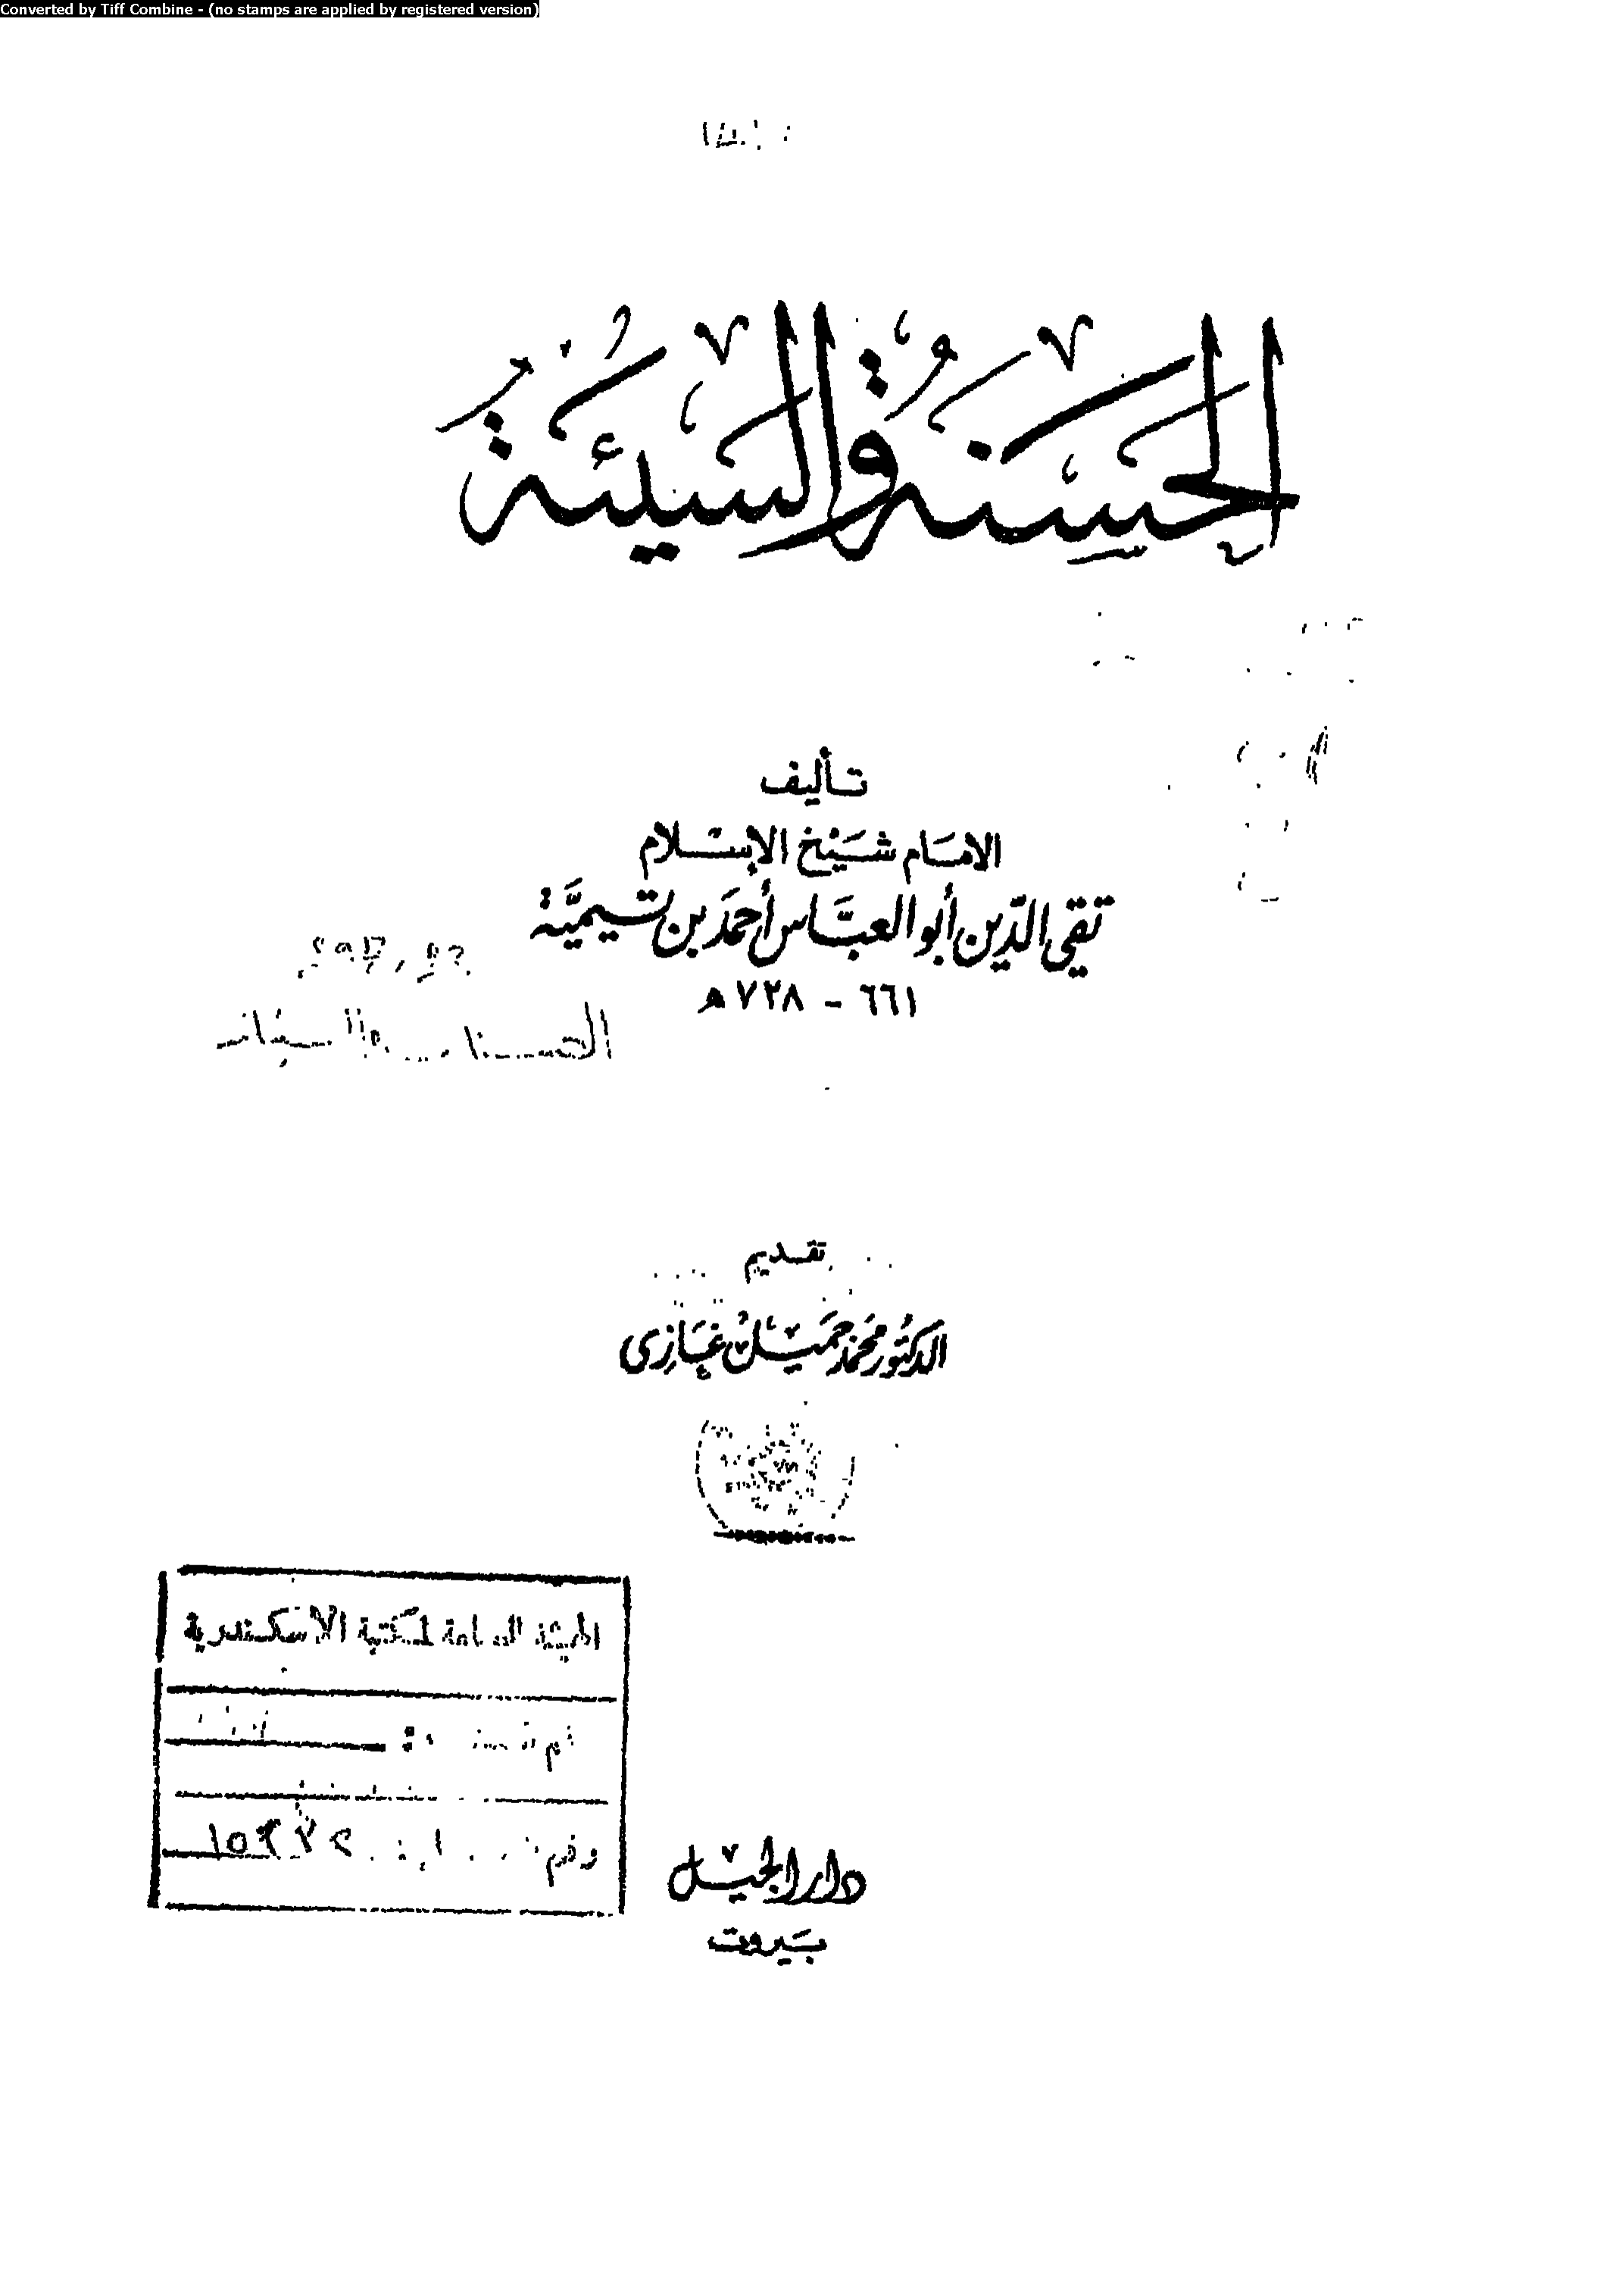 Converted by Tiff Combine - (no stamps are applied by registered version)
الحسنة والسيئة
تأليف
الامام شيخ الإسلام
تقي الدين أبو العباس أحمد بن تيمية
٦٦١ - ٧٢٨ هـ
تقديم
الدكتور محمد جميل غازى
الهيئة العامة لمكتبة الاسكندرية
دار الجيل
بيروت